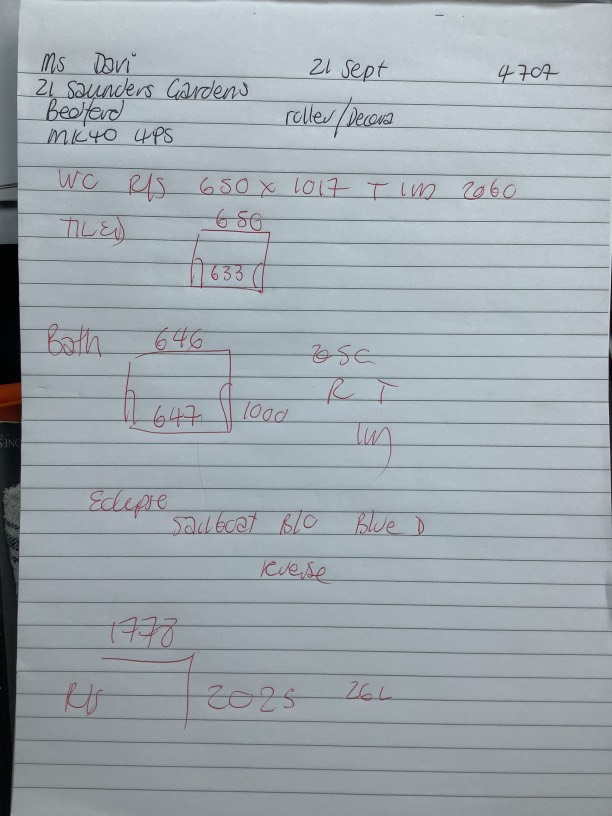 Ms Davi 21 Sept 4707
21 Saunders Gardens
Bedford roller/Decora
MK40 4PS
WC R/S 650 x 1017 T IM 2060
TILED 650
633
Bath 646 25C
R T
647 1000
IM
Eclipse
Sailboat B/O Blue D
reverse
1778
R/S 2025 26L